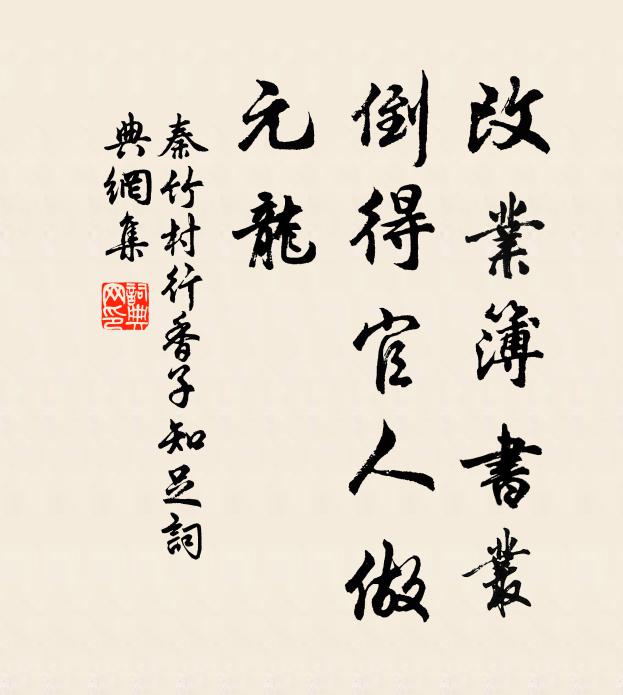 改業簿書叢
倒得官人做
元龍
秦竹村行香子知足詞
典網集
詞典網印